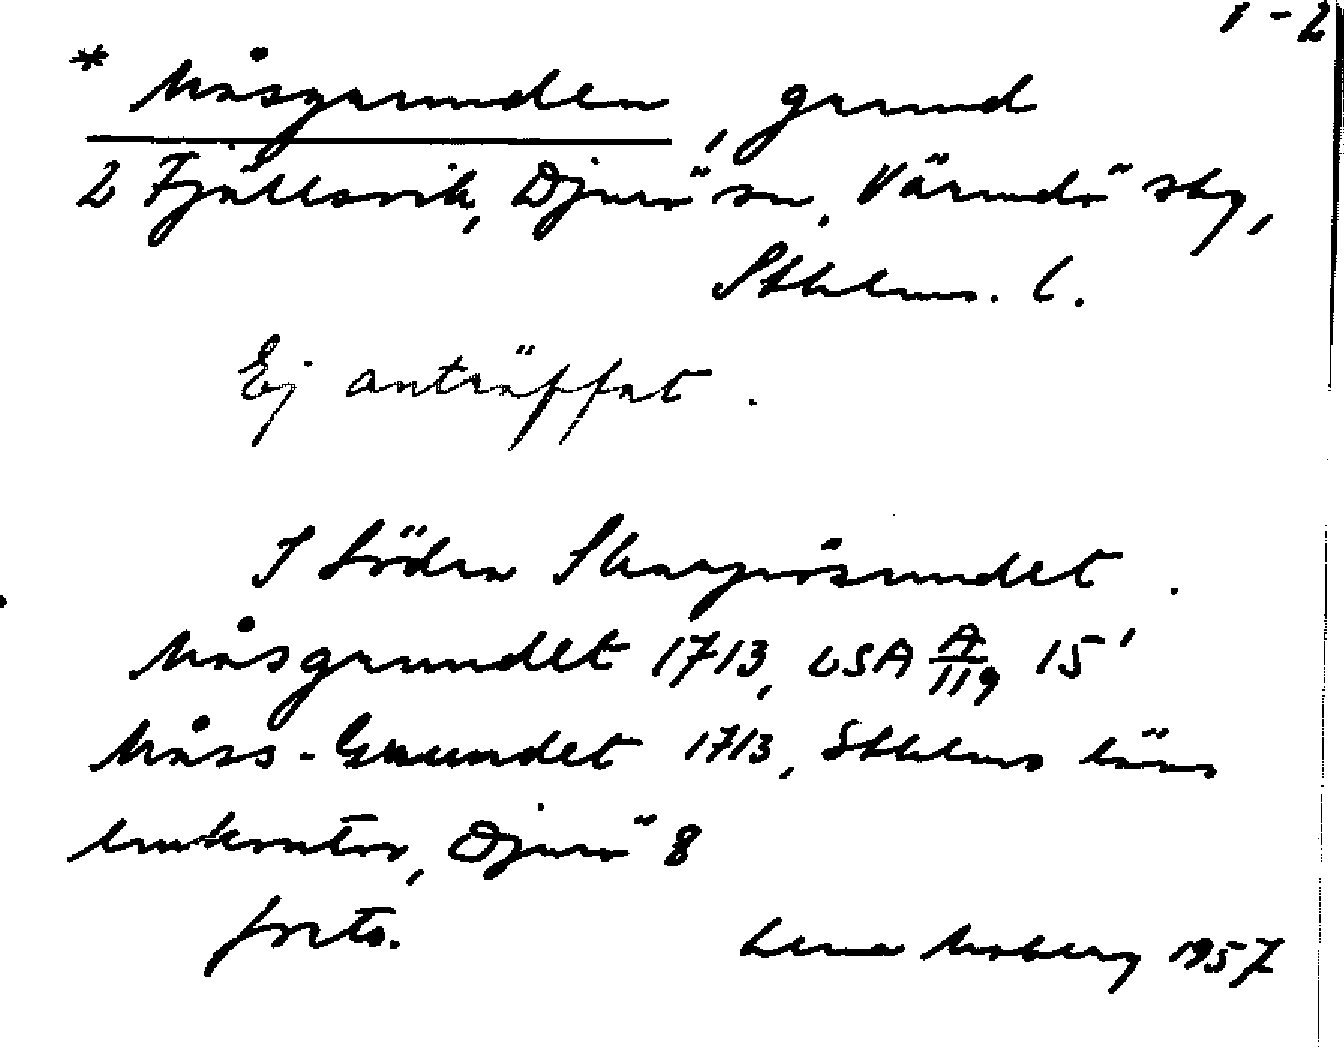 1-2
* Måsgrunden, grund
2 Fjällsvik, Djurö sn, Värmdö skg,
Sthlms. l.
Ej anträffat.
I Södra Skarpösundet.
Måsgrundet 1713, LSA A/119 15'
Måss-Grundet 1713, Sthlms läns
lantkontor, Djurö 8
forts. Lena Moberg 1957